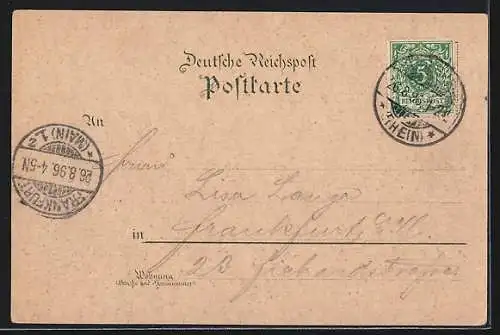 Deutsche Reichspost
Postkarte
An
Lisa
in Frankfurt a/M.
23
Wohnung
(Straße und Hausnummer)
5
REICHSPOST
26.8.96
(RHEIN)
FRANKFURT
26.8.96. 4-5N.
* (MAIN) 1.